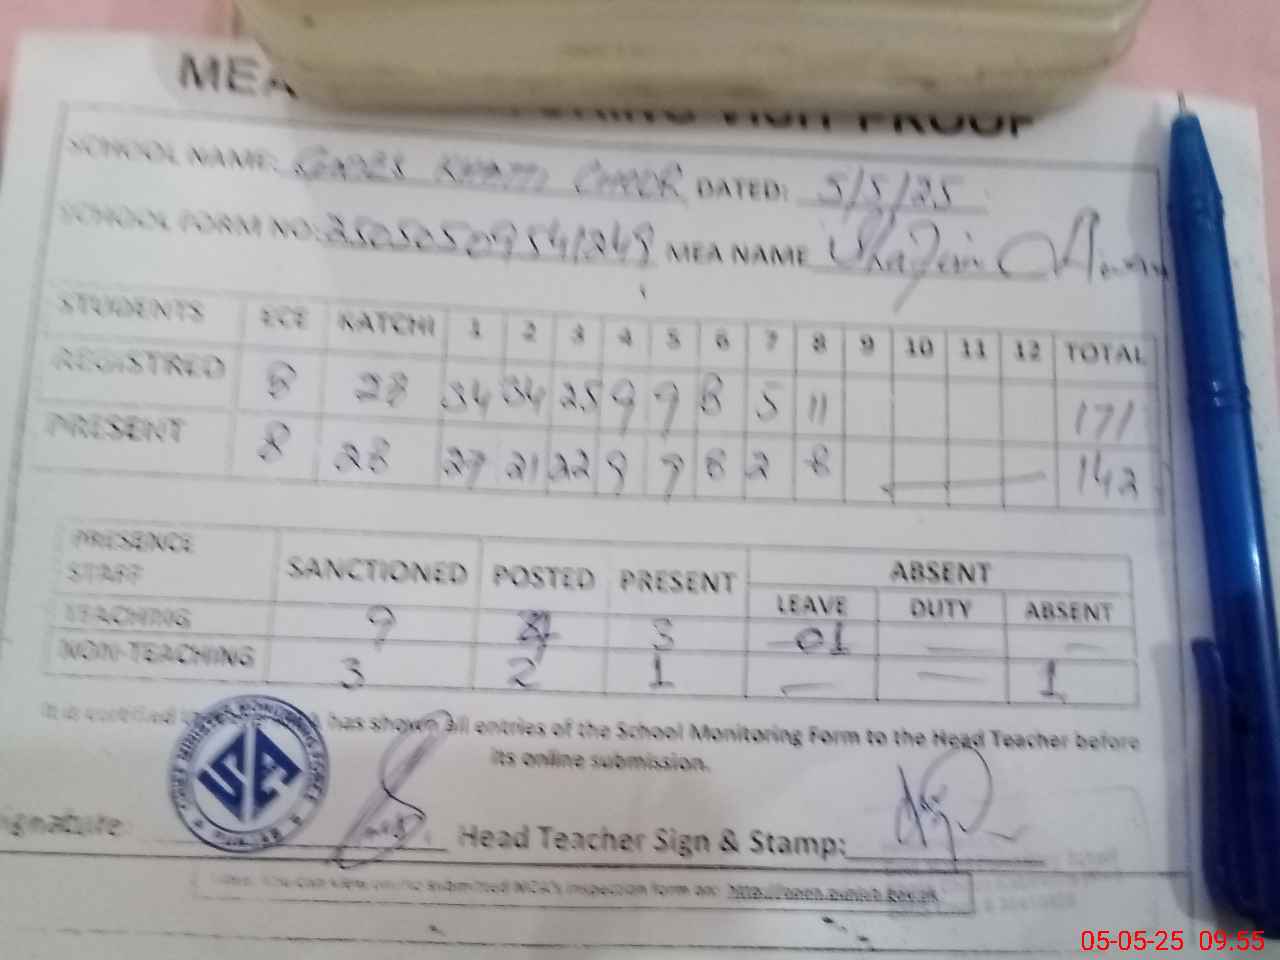 MEA MONITORING VISIT PROOF
SCHOOL NAME: GGPES KHATTI CHOOR DATED: 5/5/25
SCHOOL FORM NO: MEA NAME
STUDENTS ECE KATCHI 1 2 3 4 5 6 7 8 9 10 11 12 TOTAL
REGISTRED 8 28 34 34 25 9 9 8 5 11 171
PRESENT 8 28 27 21 22 9 9 8 2 8 142
PRESENCE STAFF SANCTIONED POSTED PRESENT ABSENT
LEAVE DUTY ABSENT
TEACHING 9 3 01 — —
NON-TEACHING 3 2 1 — — 1
It is certified has shown all entries of the School Monitoring Form to the Head Teacher before
its online submission.
ignature: Head Teacher Sign & Stamp:
You can view online submitted MEA's inspection form on: http://open.punjab.gov.pk
05-05-25 09:55